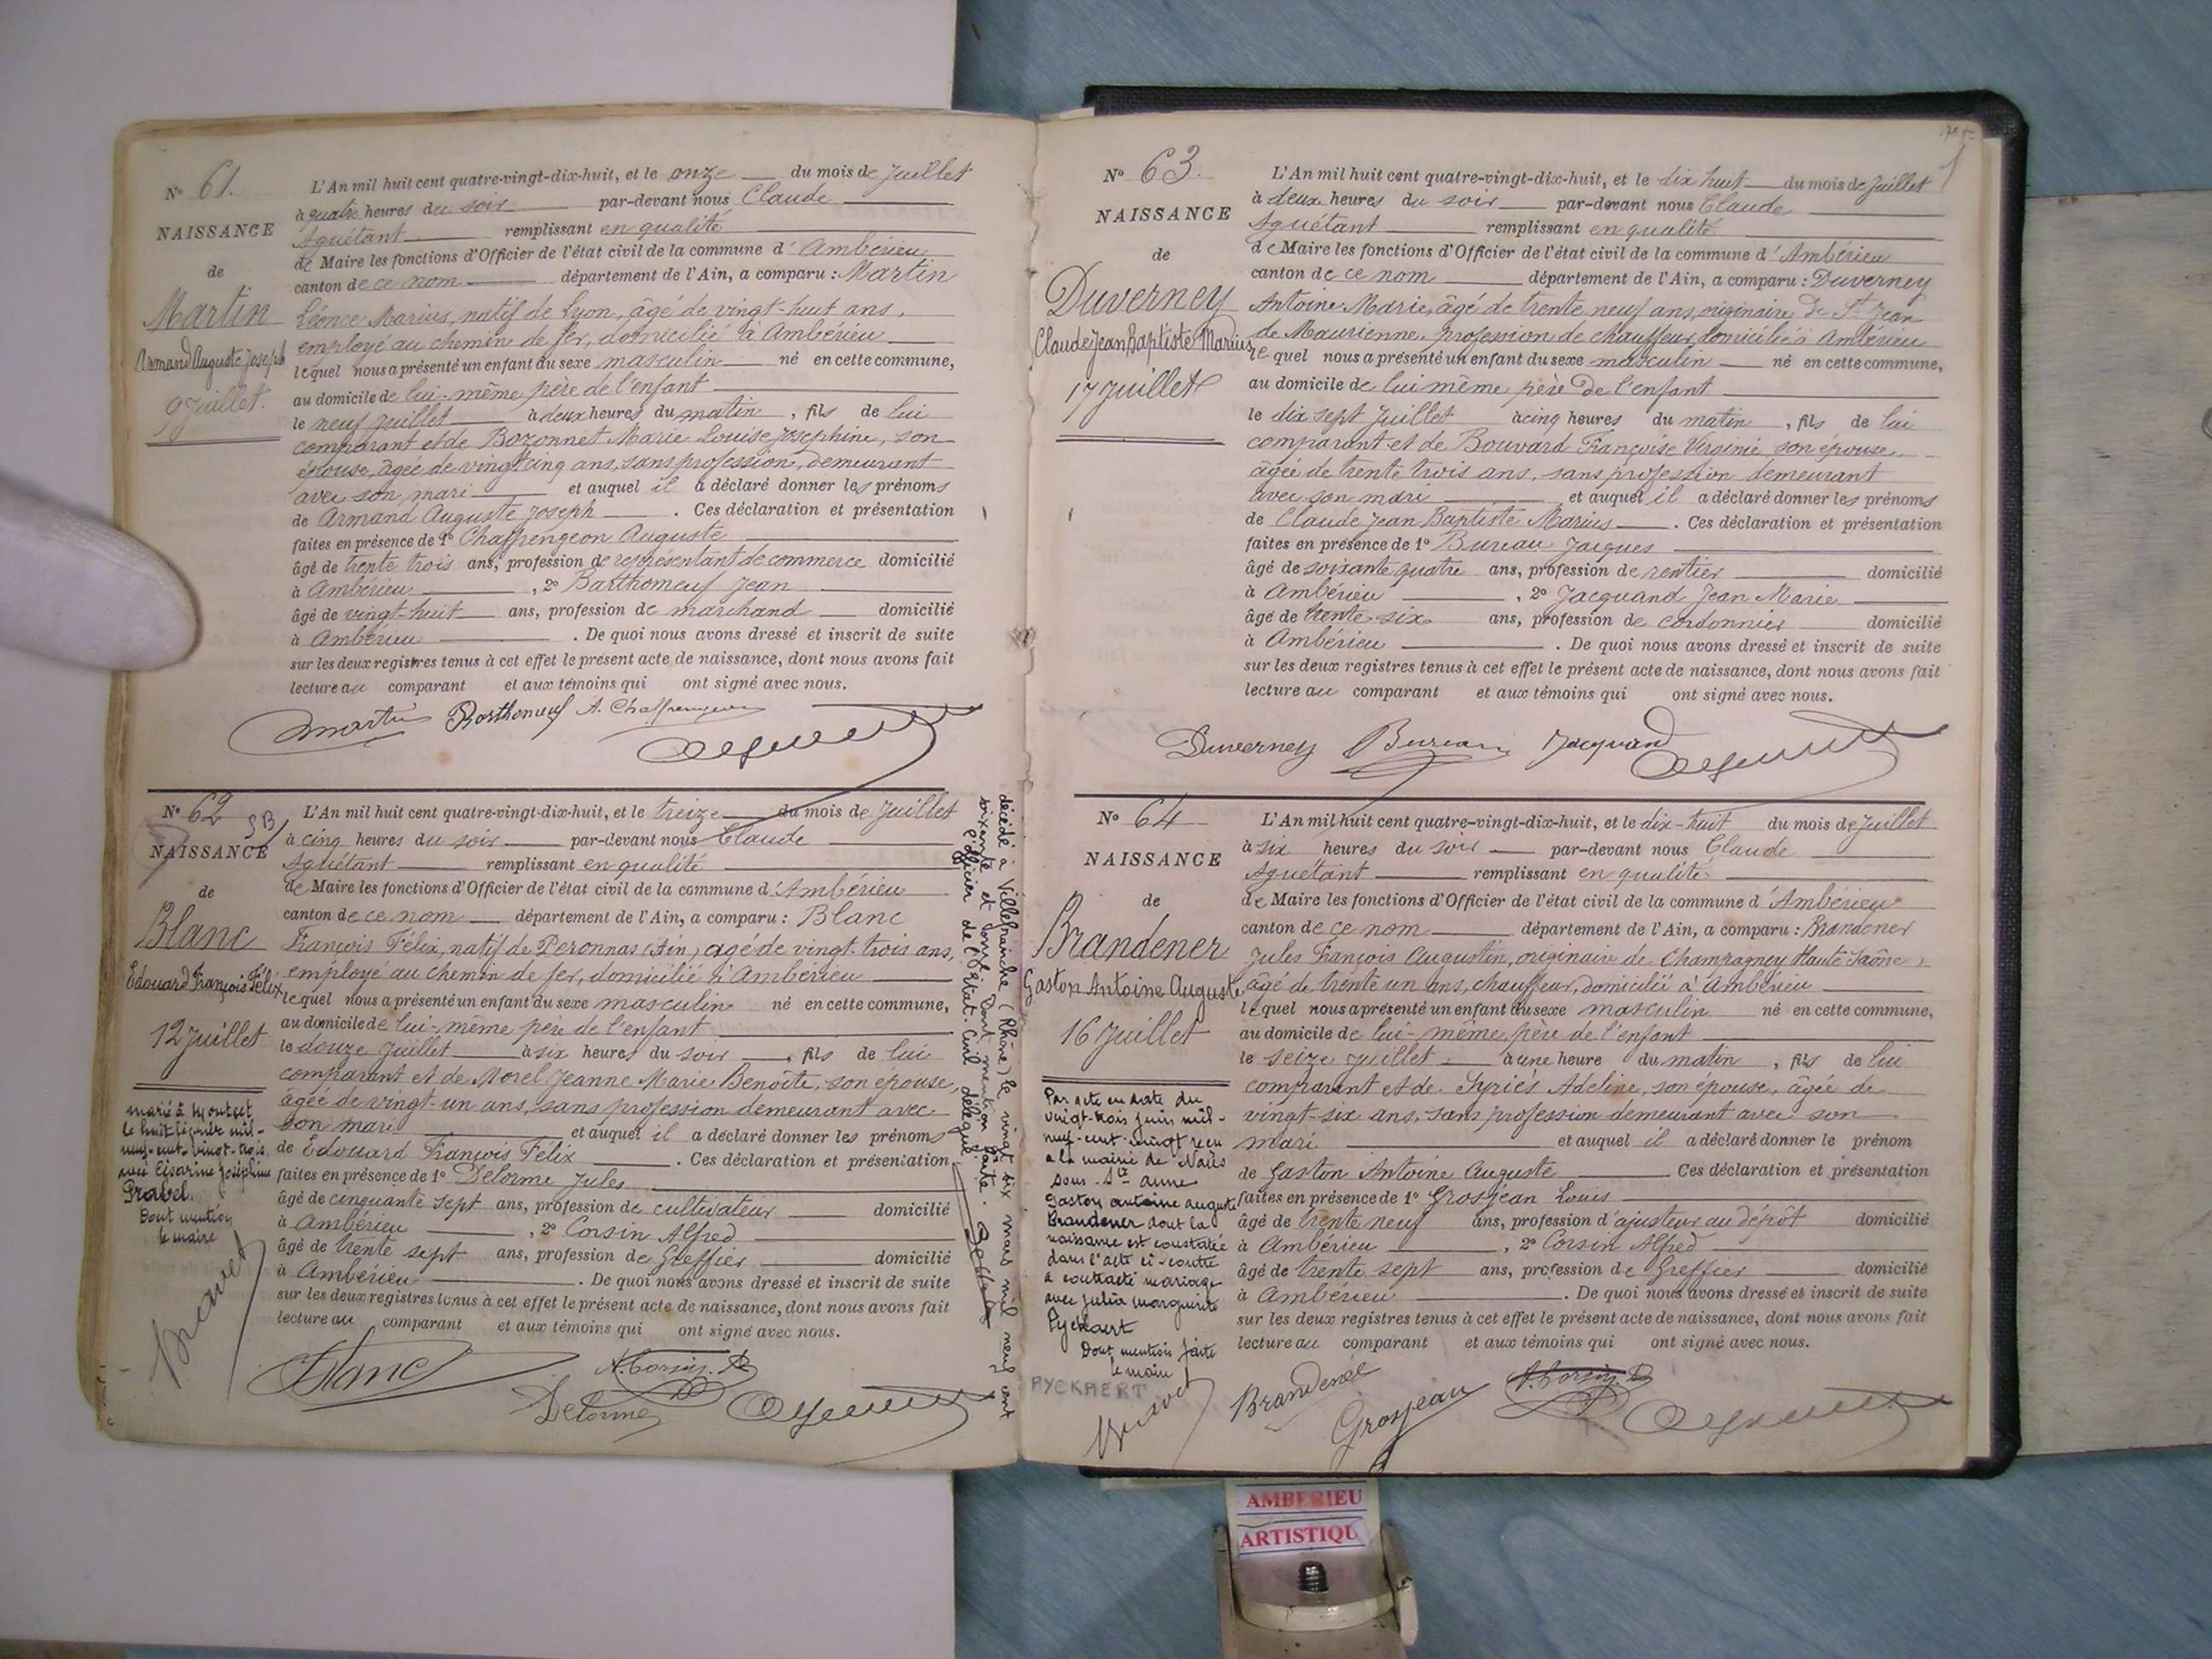 Nº 61.
NAISSANCE
de
Martin
Armand Auguste Joseph
9 Juillet.
L'An mil huit cent quatre-vingt-dix-huit, et le onze du mois de Juillet
à quatre heures du soir par-devant nous Claude
Aguétant remplissant en qualité
de Maire les fonctions d'Officier de l'état civil de la commune d'Ambérieu
canton de ce nom département de l'Ain, a comparu : Martin
Léonce Marius, natif de Lyon, âgé de vingt-huit ans,
employé au chemin de fer, domicilié à Ambérieu
lequel nous a présenté un enfant du sexe masculin né en cette commune,
au domicile de lui-même père de l'enfant
le neuf juillet à deux heures du matin, fils de lui
comparant et de Bozonnet Marie Louise Josephine, son
épouse, âgée de vingt cinq ans, sans profession, demeurant
avec son mari et auquel il a déclaré donner les prénoms
de Armand Auguste Joseph. Ces déclaration et présentation
faites en présence de 1º Chaffrengeon Auguste
âgé de trente trois ans, profession de représentant de commerce domicilié
à Ambérieu, 2º Barthomeuf Jean
âgé de vingt-huit ans, profession de marchand domicilié
à Ambérieu. De quoi nous avons dressé et inscrit de suite
sur les deux registres tenus à cet effet le présent acte de naissance, dont nous avons fait
lecture au comparant et aux témoins qui ont signé avec nous.
Martin Barthomeuf A. Chaffrengeon
Nº 62
SB
NAISSANCE
de
Blanc
Edouard François Félix
12 Juillet
marié à Montcet
le huit février mil-
neuf-cent-vingt-trois
avec Césarine Joséphine
Prabel.
Dont mention
le maire
L'An mil huit cent quatre-vingt-dix-huit, et le treize du mois de Juillet
à cinq heures du soir par-devant nous Claude
Aguétant remplissant en qualité
de Maire les fonctions d'Officier de l'état civil de la commune d'Ambérieu
canton de ce nom département de l'Ain, a comparu : Blanc
François Félix, natif de Peronnas (Ain) agé de vingt-trois ans,
employé au chemin de fer, domicilié à Ambérieu
lequel nous a présenté un enfant du sexe masculin né en cette commune,
au domicile de lui-même père de l'enfant
le douze Juillet à six heures du soir, fils de lui
comparant et de Morel Jeanne Marie Benoîte, son épouse,
âgée de vingt-un ans, sans profession demeurant avec
son mari et auquel il a déclaré donner les prénoms
de Edouard François Félix. Ces déclaration et présentation
faites en présence de 1º Delorme Jules
âgé de cinquante sept ans, profession de cultivateur domicilié
à Ambérieu, 2º Corsin Alfred
âgé de trente sept ans, profession de Greffier domicilié
à Ambérieu. De quoi nous avons dressé et inscrit de suite
sur les deux registres tenus à cet effet le présent acte de naissance, dont nous avons fait
lecture au comparant et aux témoins qui ont signé avec nous.
Blanc A. Corsin
Delorme
décédé à Villefranche (Rhône) le vingt six mars mil neuf cent
soixante et onze. Dont mention faite.
l'Officier de l'Etat-Civil délégué
Nº 63.
NAISSANCE
de
Duverney
Claude Jean Baptiste Marius
17 Juillet
L'An mil huit cent quatre-vingt-dix-huit, et le dix huit du mois de Juillet
à deux heures du soir par-devant nous Claude
Aguétant remplissant en qualité
de Maire les fonctions d'Officier de l'état civil de la commune d'Ambérieu
canton de ce nom département de l'Ain, a comparu : Duverney
Antoine Marie, âgé de trente neuf ans, originaire de St Jean
de Maurienne, profession de chauffeur, domicilié à Ambérieu
lequel nous a présenté un enfant du sexe masculin né en cette commune,
au domicile de lui même père de l'enfant
le dix sept Juillet à cinq heures du matin, fils de lui
comparant et de Bouvard Françoise Virginie son épouse,
âgée de trente trois ans, sans profession demeurant
avec son mari et auquel il a déclaré donner les prénoms
de Claude Jean Baptiste Marius. Ces déclaration et présentation
faites en présence de 1º Bureau Jacques
âgé de soixante quatre ans, profession de rentier domicilié
à Ambérieu, 2º Jacquand Jean Marie
âgé de trente-six ans, profession de cordonnier domicilié
à Ambérieu. De quoi nous avons dressé et inscrit de suite
sur les deux registres tenus à cet effet le présent acte de naissance, dont nous avons fait
lecture au comparant et aux témoins qui ont signé avec nous.
Duverney Bureau Jacquand
Nº 64
NAISSANCE
de
Brandener
Gaston Antoine Auguste
16 Juillet
Par acte en date du
vingt-trois juin mil-
neuf-cent-vingt reçu
a la mairie de Vaux
sous-Ste Anne
Gaston antoine auguste
Brandener dont la
naissance est constatée
dans l'acte ci-contre
a contracté mariage
avec Julia Marguerite
Pyckaert
Dont mention faite
le maire
PYCKAERT
L'An mil huit cent quatre-vingt-dix-huit, et le dix-huit du mois de Juillet
à six heures du soir par-devant nous Claude
Aguétant remplissant en qualité
de Maire les fonctions d'Officier de l'état civil de la commune d'Ambérieu
canton de ce nom département de l'Ain, a comparu : Brandener
Jules François Augustin, originaire de Champagney Haute Saône,
âgé de trente un ans, chauffeur, domicilié à Ambérieu
lequel nous a présenté un enfant du sexe masculin né en cette commune,
au domicile de lui-même, père de l'enfant
le seize juillet à une heure du matin, fils de lui
comparant et de Syriès Adeline, son épouse, âgée de
vingt-six ans, sans profession demeurant avec son
mari et auquel il a déclaré donner le prénom
de Gaston Antoine Auguste Ces déclaration et présentation
faites en présence de 1º Grosjean Louis
âgé de trente neuf ans, profession d'ajusteur au dépôt domicilié
à Ambérieu, 2º Corsin Alfred
âgé de trente sept ans, profession de Greffier domicilié
à Ambérieu. De quoi nous avons dressé et inscrit de suite
sur les deux registres tenus à cet effet le présent acte de naissance, dont nous avons fait
lecture au comparant et aux témoins qui ont signé avec nous.
Brandener Grosjean A. Corsin
AMBERIEU
ARTISTIQU